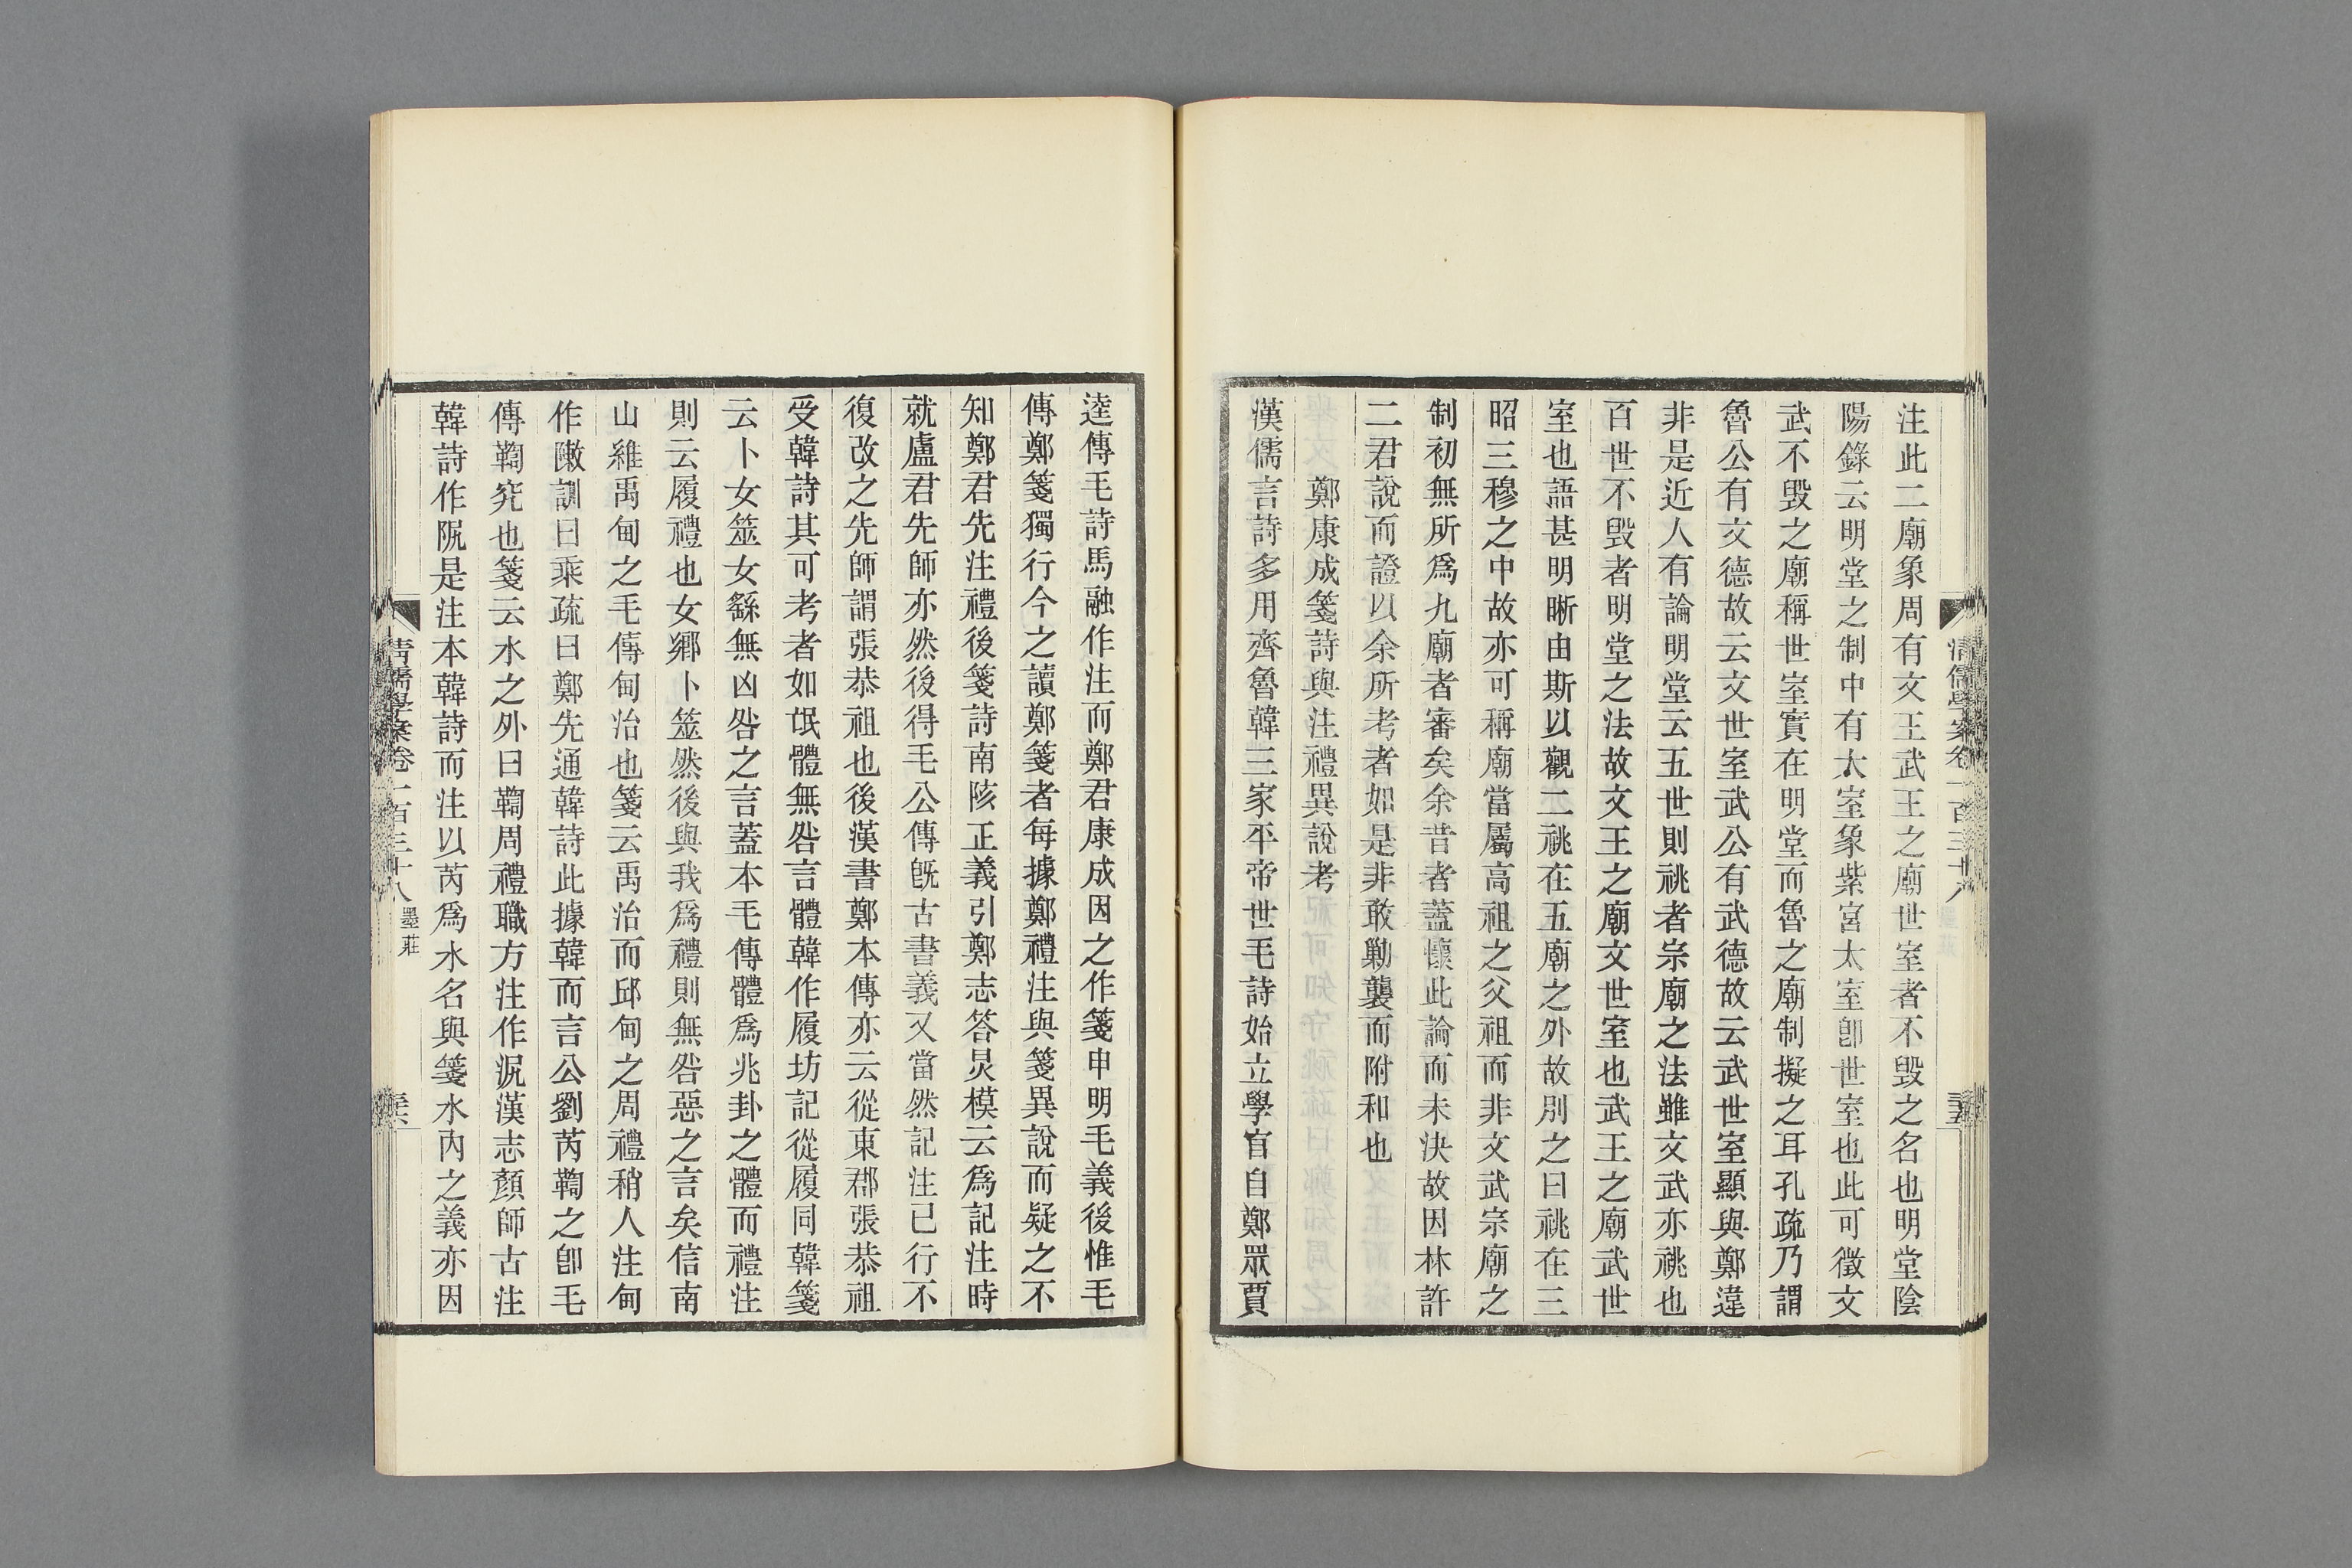 注此二廟象周有文王武王之廟世室者不毀之名也明堂陰
陽錄云明堂之制中有太室象紫宮太室卽世室也此可徵文
武不毀之廟稱世室實在明堂而魯之廟制擬之耳孔疏乃謂
魯公有文德故云文世室武公有武德故云武世室顯與鄭違
非是近人有論明堂云五世則祧者宗廟之法雖文武亦祧也
百世不毀者明堂之法故文王之廟文世室也武王之廟武世
室也語甚明晰由斯以觀二祧在五廟之外故別之曰祧在三
昭三穆之中故亦可稱廟當屬高祖之父祖而非文武宗廟之
制初無所爲九廟者審矣余昔者蓋懷此論而未決故因林許
二君說而證以余所考者如是非敢勦襲而附和也
鄭康成箋詩與注禮異說考
漢儒言詩多用齊魯韓三家平帝世毛詩始立學官自鄭眾賈
逵傳毛詩馬融作注而鄭君康成因之作箋申明毛義後惟毛
傳鄭箋獨行今之讀鄭箋者每據鄭禮注與箋異說而疑之不
知鄭君先注禮後箋詩南陔正義引鄭志答炅模云爲記注時
就盧君先師亦然後得毛公傳旣古書義又當然記注已行不
復改之先師謂張恭祖也後漢書鄭本傳亦云從東郡張恭祖
受韓詩其可考者如氓體無咎言體韓作履坊記從履同韓箋
云卜女筮女繇無凶咎之言蓋本毛傳體爲兆卦之體而禮注
則云履禮也女鄉卜筮然後與我爲禮則無咎惡之言矣信南
山維禹甸之毛傳甸治也箋云禹治而邱甸之周禮稍人注甸
作敶訓曰乘疏曰鄭先通韓詩此據韓而言公劉芮鞫之卽毛
傳鞫究也箋云水之外曰鞫周禮職方注作泥漢志顏師古注
韓詩作阮是注本韓詩而注以芮爲水名與箋水內之義亦因
清儒學案卷一百三十八
墨莊